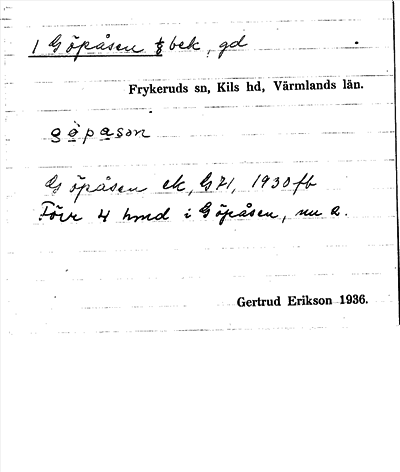 1 Göpåsen bek, gd
Frykeruds sn, Kils hd, Värmlands län.
göpason
Göpåsen ek, G71, 1930 fb
Förr 4 hmd i Göpåsen, nu 2.
Gertrud Erikson 1936.